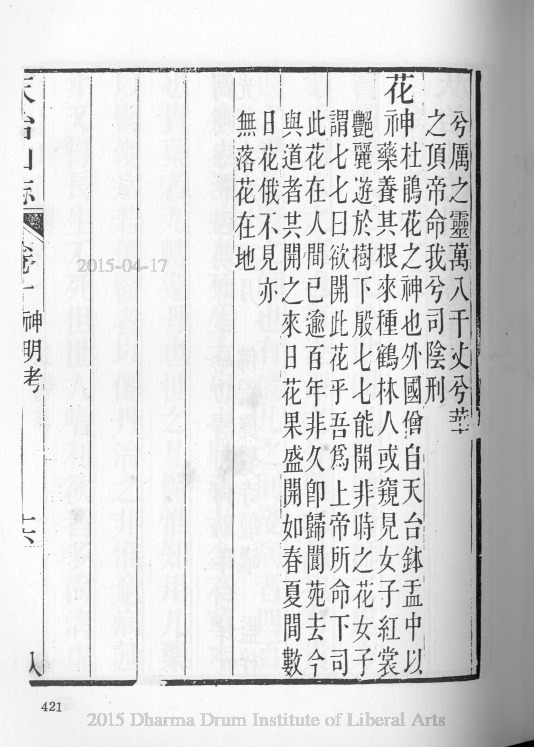 兮厲之靈萬八千丈兮華
之頂帝命我兮司陰刑
花神
杜鵑花之神也外國僧自天台鉢盂中以
藥養其根來種鶴林人或窺見女子紅裳
艷麗遊於樹下殷七七能開非時之花女子
謂七七曰欲開此花乎吾爲上帝所命下司
此花在人間已逾百年非久卽歸閬苑去今
與道者共開之來日花果盛開如春夏間數
日花俄不見亦
無落花在地
神明考
421
2015-04-17
2015 Dharma Drum Institute of Liberal Arts